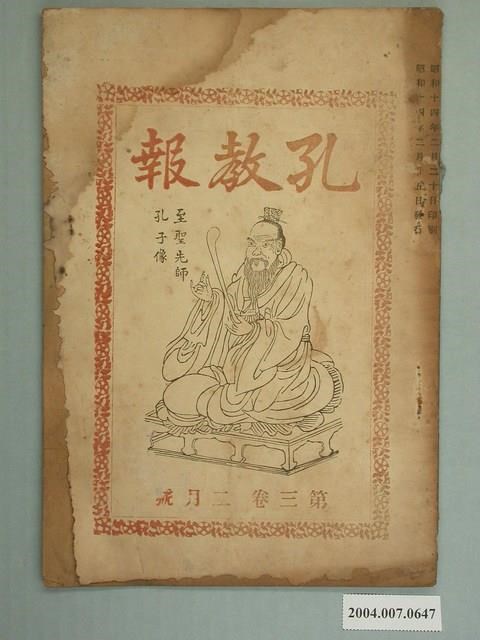 昭和十四年二月二十日印刷
昭和十四年二月廿五日發行
孔教報
至聖先師
孔子像
第三卷 二月號
2004.007.0647